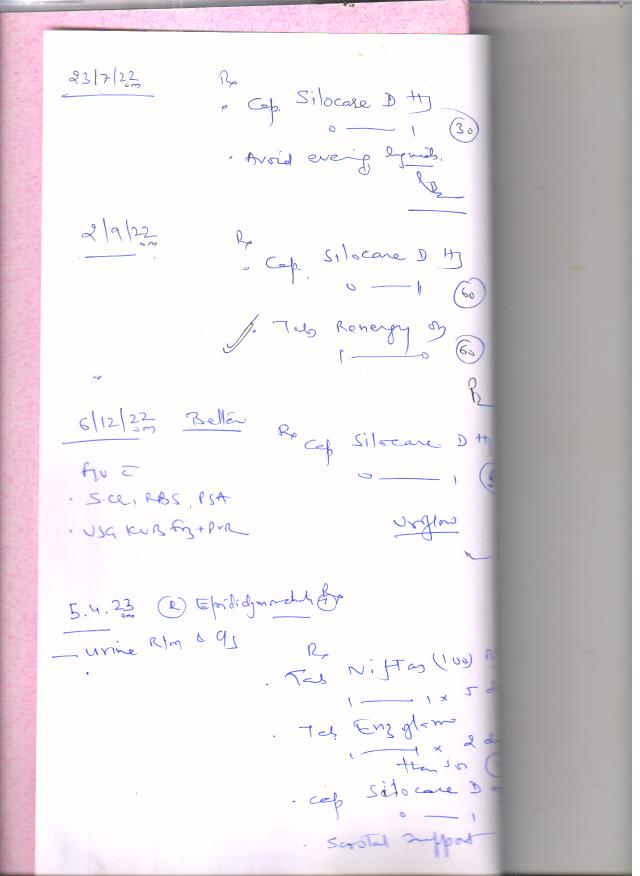 23/7/22
Rx
. Cap. Silocare D
0 — 1 30
. Avoid evening liquids.
2/9/22
Rx
. Cap. Silocare D
0 — 1 60
. Tab Renergy
1 — 0 60
6/12/22 Better
Rx Cap Silocare D
0 — 1
f/u c̄
. S.Cr, RBS, PSA
. USG KUB + PVR
Uroflow
5.4.23 (R) Epididymorchitis
— urine R/m
Rx
. Tab Niftas (100)
1 — 1 x 5 d
. Tab Enzflam
1 — 1 x 2 d
then
. cap Silocare D
0 — 1
. Scrotal support